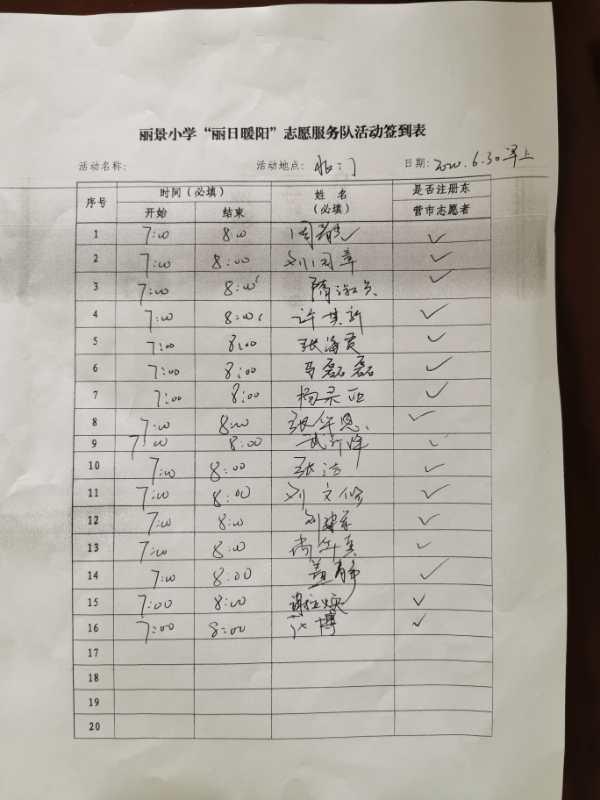 丽景小学“丽日暖阳”志愿服务队活动签到表
活动名称: 活动地点: 北门 日期: 2020.6.30 早上
序号 时间(必填) 姓名 (必填) 是否注册东营市志愿者
开始 结束
1 7:00 8:00 ✓
2 7:00 8:00 刘同章 ✓
3 7:00 8:00 隋淑贞 ✓
4 7:00 8:00 许其新 ✓
5 7:00 8:00 张海霞 ✓
6 7:00 8:00 马磊磊 ✓
7 7:00 8:00 ✓
8 7:00 8:00 张华恩 ✓
9 7:00 8:00 ✓
10 7:00 8:00 张洁 ✓
11 7:00 8:00 刘文修 ✓
12 7:00 8:00 ✓
13 7:00 8:00 ✓
14 7:00 8:00 盖静 ✓
15 7:00 8:00 ✓
16 7:00 8:00 ✓
17
18
19
20